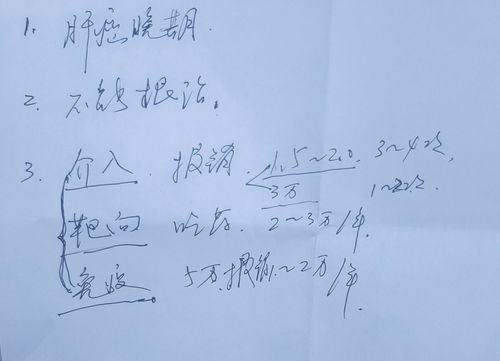 1. 肝癌晚期.
2. 不能根治.
3. 介入. 报销. 1.5~2.0. 3~4次,
3万 1~2次.
靶向 吃药. 2~3万/年.
免疫 5万.报销.~2万/年.